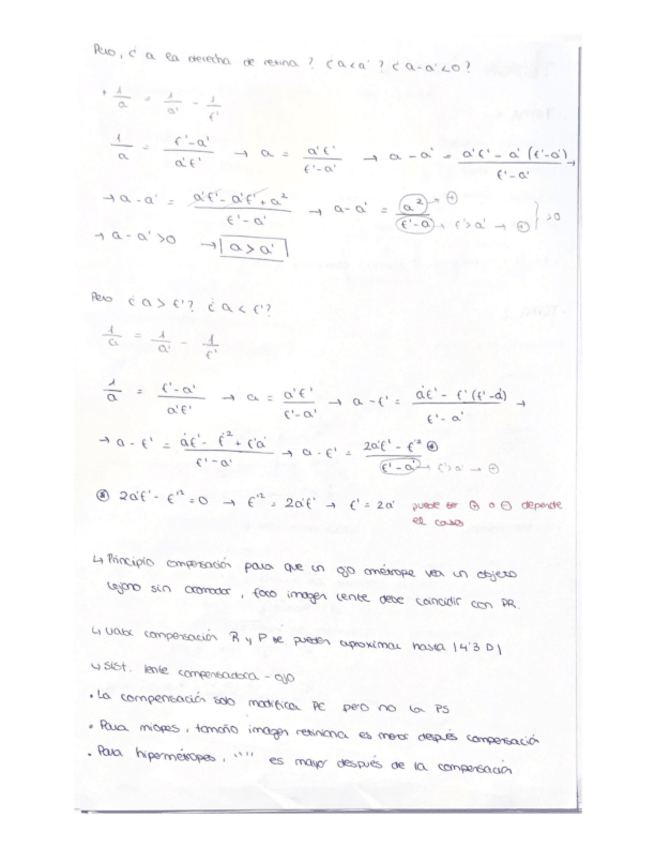 Pero, ¿ a la derecha de retina ? ¿ a<a' ? ¿ a-a'<0 ?
1/a = 1/a' - 1/f'
1/a = f'-a' / a'f' → a = a'f' / f'-a' → a-a' = a'f' - a' (f'-a') / f'-a' →
→ a-a' = a'f' - a'f' + a² / f'-a' → a-a' = a² / f'-a → ⊕ f'>a' → ⊕ } >0
→ a-a' >0 → a > a'
Pero ¿ a > f' ? ¿ a < f' ?
1/a = 1/a' - 1/f'
1/a = f'-a' / a'f' → a = a'f' / f'-a' → a-f' = a'f' - f' (f'-a') / f'-a' →
→ a-f' = a'f' - f'² + f'a' / f'-a' → a-f' = 2a'f' - f'² / f'-a' → f'>a' → ⊕
2a'f' - f'² = 0 → f'² = 2a'f' → f' = 2a' puede ser ⊕ o ⊖ depende
el caso
↳ Principio compensación para que un ojo amétrope vea un objeto
lejano sin acomodar, foco imagen lente debe coincidir con PR.
↳ Valor compensación R y P se pueden aproximar hasta |4'3 D|
↳ Sist. lente compensadora - ojo
• La compensación solo modifica PC pero no la PS
• Para miopes, tamaño imagen retiniana es menor después compensación
• Para hipermétropes, "" es mayor después de la compensación